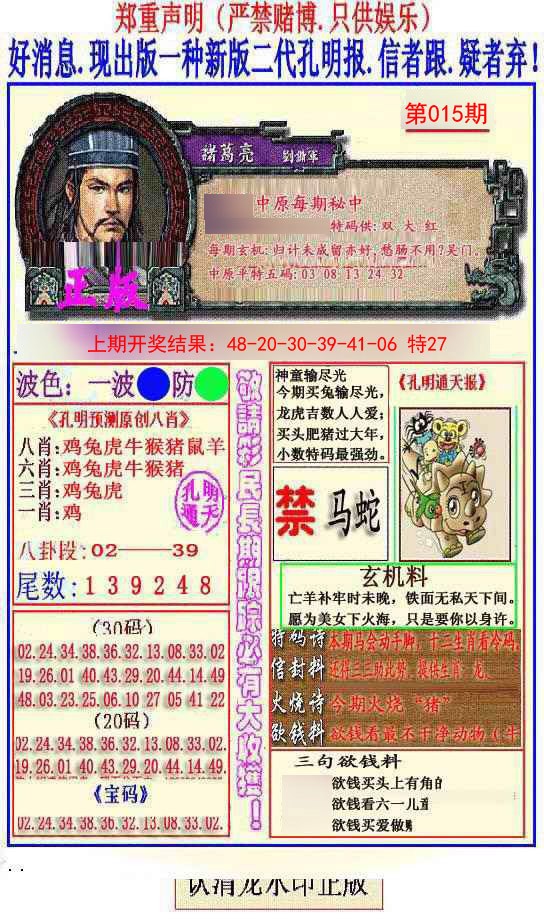 郑重声明（严禁赌博.只供娱乐）
好消息.现出版一种新版二代孔明报.信者跟.疑者弃！
第015期
諸葛亮
中原每期秘中
特码供: 双 大 红
每期玄机: 归计未成留亦好, 愁肠不用?吴门.
中原平特五码: 03 08 13 24 32
正版
上期开奖结果：48-20-30-39-41-06 特27
波色：一波 防
《孔明预测原创八肖》
八肖:鸡兔虎牛猴猪鼠羊
六肖:鸡兔虎牛猴猪
三肖:鸡兔虎
一肖:鸡
孔明
通天
八卦段: 02——39
尾数: 1 3 9 2 4 8
(30码)
02.24.34.38.36.32.13.08.33.02
19.26.01.40.43.29.20.44.14.49
48.03.23.25.06.10 27 05 41 22
(20码)
02.24.34.38.36.32.13.08.33.02.
19.26.01.40.43.29.20.44.14.49.
《宝码》
02.24.34.38.36.32.13.08.33.02.
敬請彩民長期跟踪必有大收獲！
神童输尽光
今期买兔输尽光，
龙虎吉数人人爱；
买头肥猪过大年，
小数特码最强劲。
《孔明通天报》
禁 马蛇
玄机料
亡羊补牢时未晚，铁面无私天下间。
愿为美女下火海，只是要你以身许。
特码诗 本期马会动手脚，十二生肖看冷码
信封料
火烧诗 今期火烧“猪”
欲钱料 欲钱看最不干净动物（牛
三句欲钱料
欲钱买头上有角的
欲钱看六一儿童
欲钱买爱做
认清龙水印正版